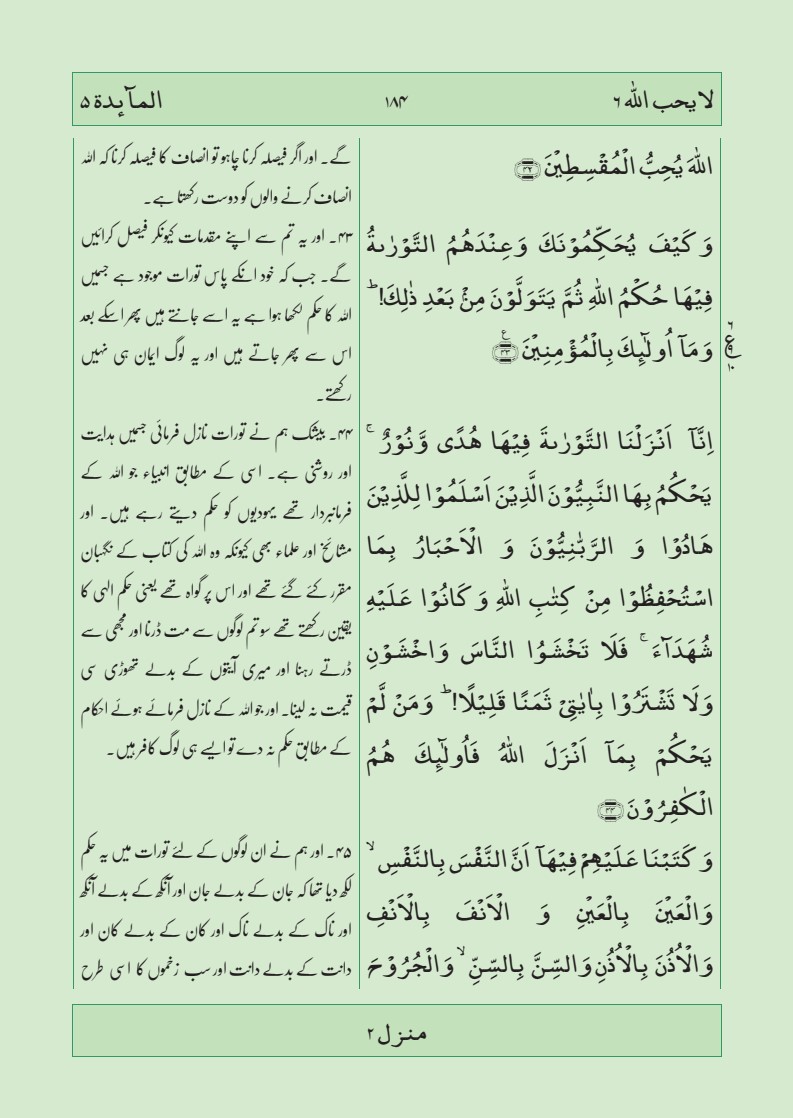 لا یحب اللہ ۶
۱۸۴
المآىِٕدة ۵
اللّٰهَ یُحِبُّ الْمُقْسِطِیْنَ ﴿۴۲﴾
وَ كَیْفَ یُحَكِّمُوْنَكَ وَعِنْدَهُمُ التَّوْرٰىةُ
فِیْهَا حُكْمُ اللّٰهِ ثُمَّ یَتَوَلَّوْنَ مِنْۢ بَعْدِ ذٰلِكَ! ؕ
وَمَاۤ اُولٰٓىِٕكَ بِالْمُؤْمِنِیْنَ ﴿۴۳﴾
ع ۶ ۱۰
اِنَّاۤ اَنْزَلْنَا التَّوْرٰىةَ فِیْهَا هُدًی وَّنُوْرٌ ۚ
یَحْكُمُ بِهَا النَّبِیُّوْنَ الَّذِیْنَ اَسْلَمُوْا لِلَّذِیْنَ
هَادُوْا وَ الرَّبّٰنِیُّوْنَ وَ الْاَحْبَارُ بِمَا
اسْتُحْفِظُوْا مِنْ كِتٰبِ اللّٰهِ وَ كَانُوْا عَلَیْهِ
شُهَدَآءَ ۚ فَلَا تَخْشَوُا النَّاسَ وَاخْشَوْنِ
وَلَا تَشْتَرُوْا بِاٰیٰتِیْ ثَمَنًا قَلِیْلًا! ؕ وَمَنْ لَّمْ
یَحْكُمْ بِمَاۤ اَنْزَلَ اللّٰهُ فَاُولٰٓىِٕكَ هُمُ
الْكٰفِرُوْنَ ﴿۴۴﴾
وَ كَتَبْنَا عَلَیْهِمْ فِیْهَاۤ اَنَّ النَّفْسَ بِالنَّفْسِ ۙ
وَالْعَیْنَ بِالْعَیْنِ وَ الْاَنْفَ بِالْاَنْفِ
وَالْاُذُنَ بِالْاُذُنِ وَالسِّنَّ بِالسِّنِّ ۙ وَالْجُرُوْحَ
گے۔ اور اگر فیصلہ کرنا چاہو تو انصاف کا فیصلہ کرنا کہ اللہ
انصاف کرنے والوں کو دوست رکھتا ہے۔
۴۳۔ اور یہ تم سے اپنے مقدمات کیونکر فیصل کرائیں
گے۔ جب کہ خود انکے پاس تورات موجود ہے جسمیں
اللہ کا حکم لکھا ہوا ہے یہ اسے جانتے ہیں پھر اسکے بعد
اس سے پھر جاتے ہیں اور یہ لوگ ایمان ہی نہیں
رکھتے۔
۴۴۔ بیشک ہم نے تورات نازل فرمائی جسمیں ہدایت
اور روشنی ہے۔ اسی کے مطابق انبیاء جو اللہ کے
فرمانبردار تھے یہودیوں کو حکم دیتے رہے ہیں۔ اور
مشائخ اور علماء بھی کیونکہ وہ اللہ کی کتاب کے نگہبان
مقرر کئے گئے تھے اور اس پر گواہ تھے یعنی حکم الہی کا
یقین رکھتے تھے سو تم لوگوں سے مت ڈرنا اور مجھی سے
ڈرتے رہنا اور میری آیتوں کے بدلے تھوڑی سی
قیمت نہ لینا۔ اور جو اللہ کے نازل فرمائے ہوئے احکام
کے مطابق حکم نہ دے تو ایسے ہی لوگ کافر ہیں۔
۴۵۔ اور ہم نے ان لوگوں کے لئے تورات میں یہ حکم
لکھ دیا تھا کہ جان کے بدلے جان اور آنکھ کے بدلے آنکھ
اور ناک کے بدلے ناک اور کان کے بدلے کان اور
دانت کے بدلے دانت اور سب زخموں کا اسی طرح
منزل ۲